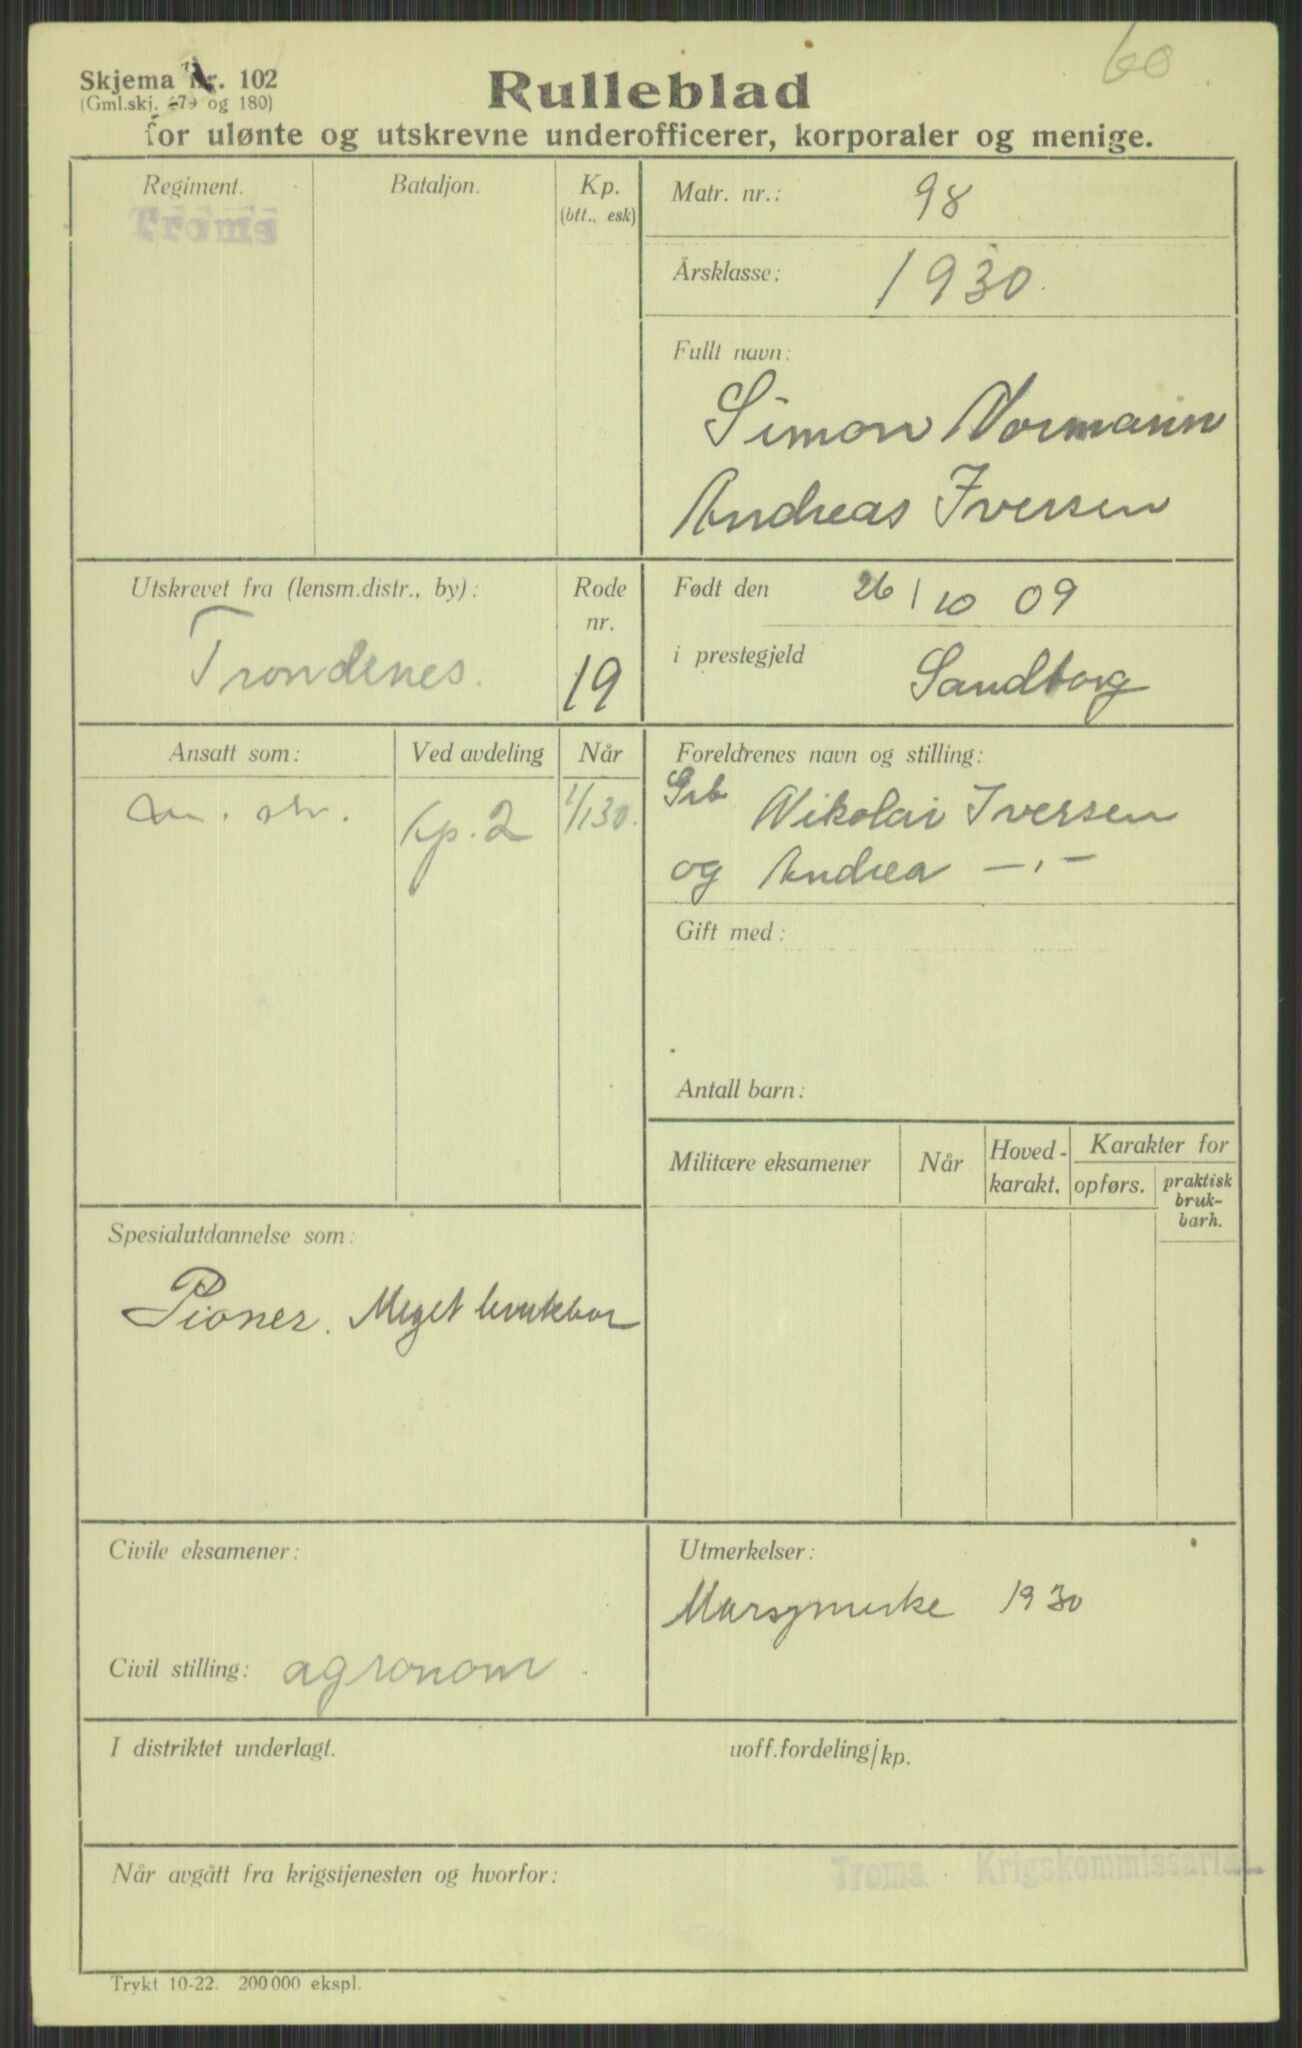 60
Skjema nr. 102
(Gml.skj. og 180)
Rulleblad
for ulønte og utskrevne underofficerer, korporaler og menige.
Regiment.
Troms
Bataljon.
Kp.
(btt., esk)
Matr. nr.: 98
Årsklasse: 1930.
Fullt navn:
Simon Normann
Andreas Iversen
Utskrevet fra (lensm.distr., by):
Trondenes.
Rode
nr.
19
Født den 26/10 09
i prestegjeld Sandtorg
Ansatt som:
Ved avdeling
Når
Kp. 2
1/1 30.
Foreldrenes navn og stilling:
Grb Nikolai Iversen
og Andrea —„—
Gift med:
Antall barn:
Militære eksamener
Når
Hoved-
karakt.
Karakter for
opførs.
praktisk
bruk-
barh.
Spesialutdannelse som:
Pioner. Meget brukbar
Civile eksamener:
Civil stilling: agronom.
Utmerkelser:
Marsjmerke 1930
I distriktet underlagt.
uoff.fordeling/kp.
Når avgått fra krigstjenesten og hvorfor:
Troms Krigskommissariat
Trykt 10-22. 200 000 ekspl.